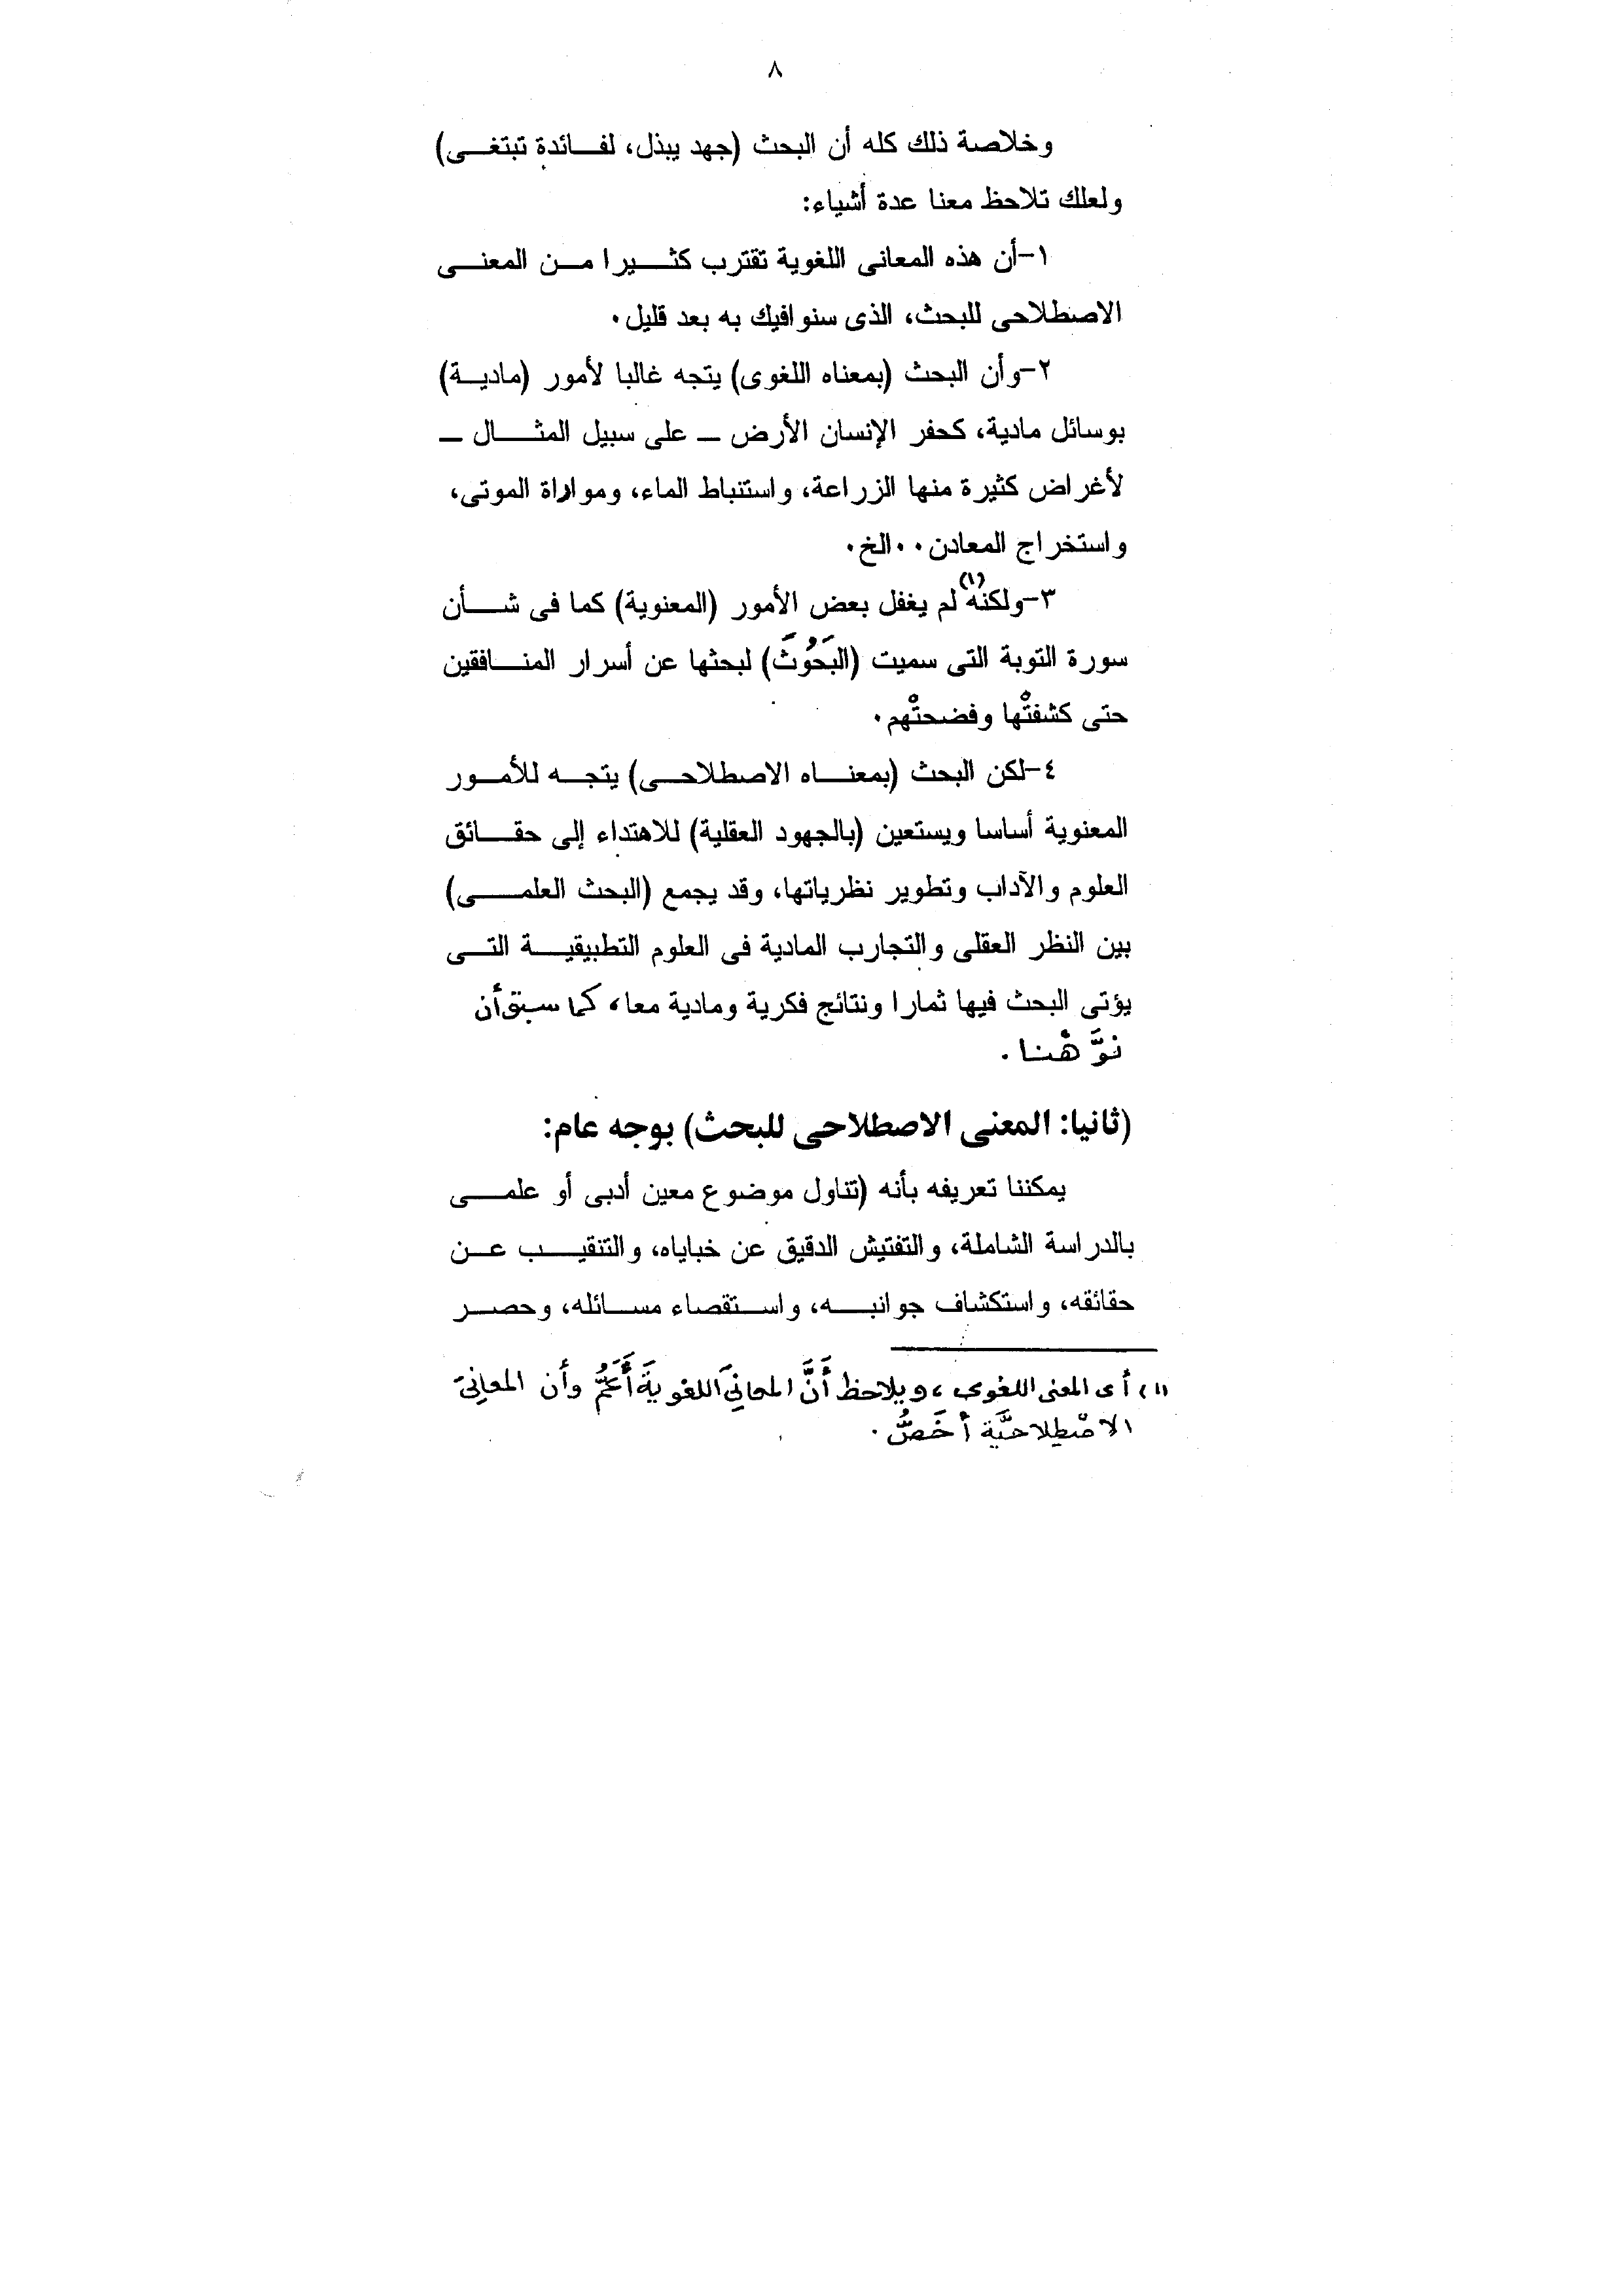 ٨
وخلاصة ذلك كله أن البحث (جهد يبذل، لفائدة تبتغى)
ولعلك تلاحظ معنا عدة أشياء:
١-أن هذه المعانى اللغوية تقترب كثيرا من المعنى
الاصطلاحى للبحث، الذى سنوافيك به بعد قليل.
٢-وأن البحث (بمعناه اللغوى) يتجه غالبا لأمور (مادية)
بوسائل مادية، كحفر الإنسان الأرض – على سبيل المثال –
لأغراض كثيرة منها الزراعة، واستنباط الماء، ومواراة الموتى،
واستخراج المعادن..الخ.
٣-ولكنه(١) لم يغفل بعض الأمور (المعنوية) كما فى شأن
سورة التوبة التى سميت (البَحُوثَ) لبحثها عن أسرار المنافقين
حتى كشفتْها وفضحتْهم.
٤-لكن البحث (بمعناه الاصطلاحى) يتجه للأمور
المعنوية أساسا ويستعين (بالجهود العقلية) للاهتداء إلى حقائق
العلوم والآداب وتطوير نظرياتها، وقد يجمع (البحث العلمى)
بين النظر العقلى والتجارب المادية فى العلوم التطبيقية التى
يؤتى البحث فيها ثمارا ونتائج فكرية ومادية معا، كما سبق أن
نوَّهْنا.
(ثانيا: المعنى الاصطلاحى للبحث) بوجه عام:
يمكننا تعريفه بأنه (تناول موضوع معين أدبى أو علمى
بالدراسة الشاملة، والتفتيش الدقيق عن خباياه، والتنقيب عن
حقائقه، واستكشاف جوانبه، واستقصاء مسائله، وحصر
(١) أى المعنى اللغوى، ويلاحظ أَنَّ المعانِىَ اللغويةَ أَعَمُّ وأن المعانِىَ
الاصْطِلاحيَّة أخَصُّ.